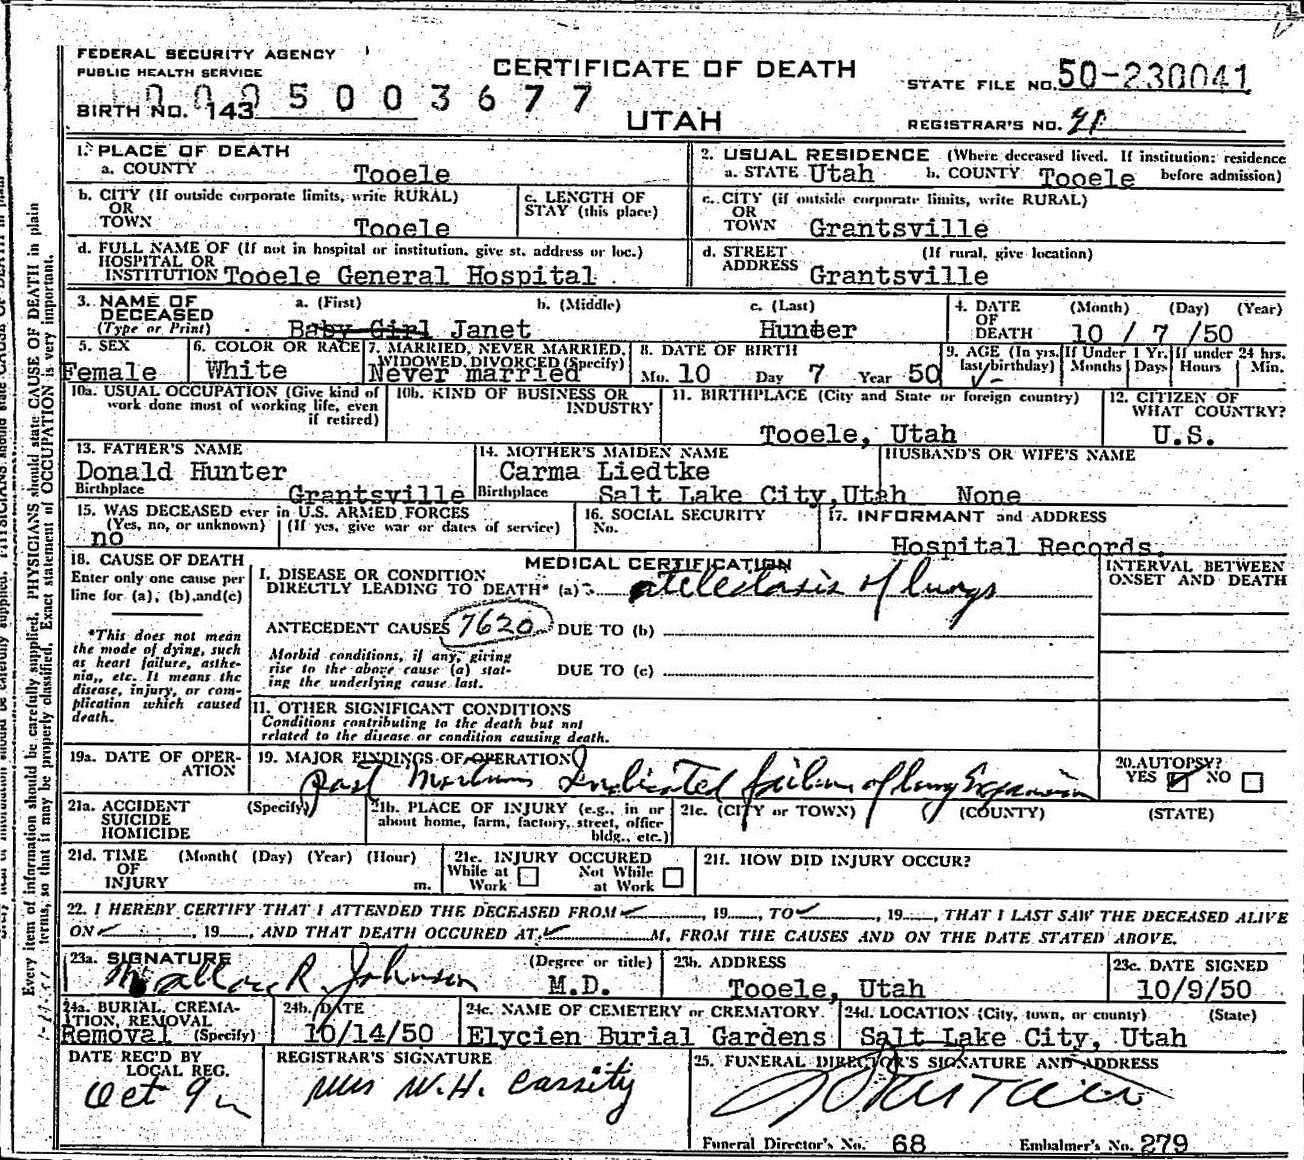 FEDERAL SECURITY AGENCY
PUBLIC HEALTH SERVICE
CERTIFICATE OF DEATH
STATE FILE NO. 50-230041
005003677
BIRTH NO. 143
UTAH
REGISTRAR'S NO.
1. PLACE OF DEATH
a. COUNTY Tooele
2. USUAL RESIDENCE (Where deceased lived. If institution: residence before admission)
a. STATE Utah b. COUNTY Tooele
b. CITY (If outside corporate limits, write RURAL) OR TOWN Tooele
c. LENGTH OF STAY (this place)
c. CITY (if outside corporate limits, write RURAL) OR TOWN Grantsville
d. FULL NAME OF (If not in hospital or institution, give st. address or loc.) HOSPITAL OR INSTITUTION Tooele General Hospital
d. STREET ADDRESS (If rural, give location) Grantsville
3. NAME OF DECEASED (Type or Print)
a. (First) b. (Middle) c. (Last)
Baby Girl Janet Hunter
4. DATE OF DEATH (Month) (Day) (Year)
10 / 7 /50
5. SEX Female
6. COLOR OR RACE White
7. MARRIED, NEVER MARRIED, WIDOWED, DIVORCED (Specify) Never married
8. DATE OF BIRTH
Mo. 10 Day 7 Year 50
9. AGE (In yrs. last birthday) If Under 1 Yr. Months Days If under 24 hrs. Hours Min.
10a. USUAL OCCUPATION (Give kind of work done most of working life, even if retired)
10b. KIND OF BUSINESS OR INDUSTRY
11. BIRTHPLACE (City and State or foreign country)
Tooele, Utah
12. CITIZEN OF WHAT COUNTRY?
U.S.
13. FATHER'S NAME
Donald Hunter
Birthplace Grantsville
14. MOTHER'S MAIDEN NAME
Carma Liedtke
Birthplace Salt Lake City, Utah
HUSBAND'S OR WIFE'S NAME
None
15. WAS DECEASED ever in U.S. ARMED FORCES
(Yes, no, or unknown) (If yes, give war or dates of service)
no
16. SOCIAL SECURITY No.
17. INFORMANT and ADDRESS
Hospital Records.
18. CAUSE OF DEATH
Enter only one cause per line for (a), (b), and (c)
*This does not mean the mode of dying, such as heart failure, asthenia, etc. It means the disease, injury, or complication which caused death.
MEDICAL CERTIFICATION
INTERVAL BETWEEN ONSET AND DEATH
I. DISEASE OR CONDITION DIRECTLY LEADING TO DEATH* (a) atelectasis of lungs
ANTECEDENT CAUSES 7620 DUE TO (b)
Morbid conditions, if any, giving rise to the above cause (a) stating the underlying cause last.
DUE TO (c)
11. OTHER SIGNIFICANT CONDITIONS
Conditions contributing to the death but not related to the disease or condition causing death.
19a. DATE OF OPERATION
19. MAJOR FINDINGS OF OPERATION
Post Mortum Indicated failure of lung Expansion
20. AUTOPSY?
YES ✓ NO
21a. ACCIDENT SUICIDE HOMICIDE (Specify)
21b. PLACE OF INJURY (e.g., in or about home, farm, factory, street, office bldg., etc.)
21c. (CITY or TOWN) (COUNTY) (STATE)
21d. TIME OF INJURY (Month) (Day) (Year) (Hour) m.
21e. INJURY OCCURED
While at Work Not While at Work
21f. HOW DID INJURY OCCUR?
22. I HEREBY CERTIFY THAT I ATTENDED THE DECEASED FROM ✓, 19, TO ✓, 19, THAT I LAST SAW THE DECEASED ALIVE
ON ✓, 19, AND THAT DEATH OCCURED AT ✓ M, FROM THE CAUSES AND ON THE DATE STATED ABOVE.
23a. SIGNATURE (Degree or title)
R. Johnson M.D.
23b. ADDRESS
Tooele, Utah
23c. DATE SIGNED
10/9/50
24a. BURIAL, CREMATION, REMOVAL (Specify) Removal
24b. DATE
10/14/50
24c. NAME OF CEMETERY or CREMATORY
Elycien Burial Gardens
24d. LOCATION (City, town, or county) (State)
Salt Lake City, Utah
DATE REC'D BY LOCAL REG.
Oct 9
REGISTRAR'S SIGNATURE
Mrs W.H. Cassity
25. FUNERAL DIRECTOR'S SIGNATURE AND ADDRESS
Funeral Director's No. 68 Embalmer's No. 279
Every item of information should be carefully supplied. PHYSICIANS should state CAUSE OF DEATH in plain
terms, so that it may be properly classified. Exact statement of OCCUPATION is very important.